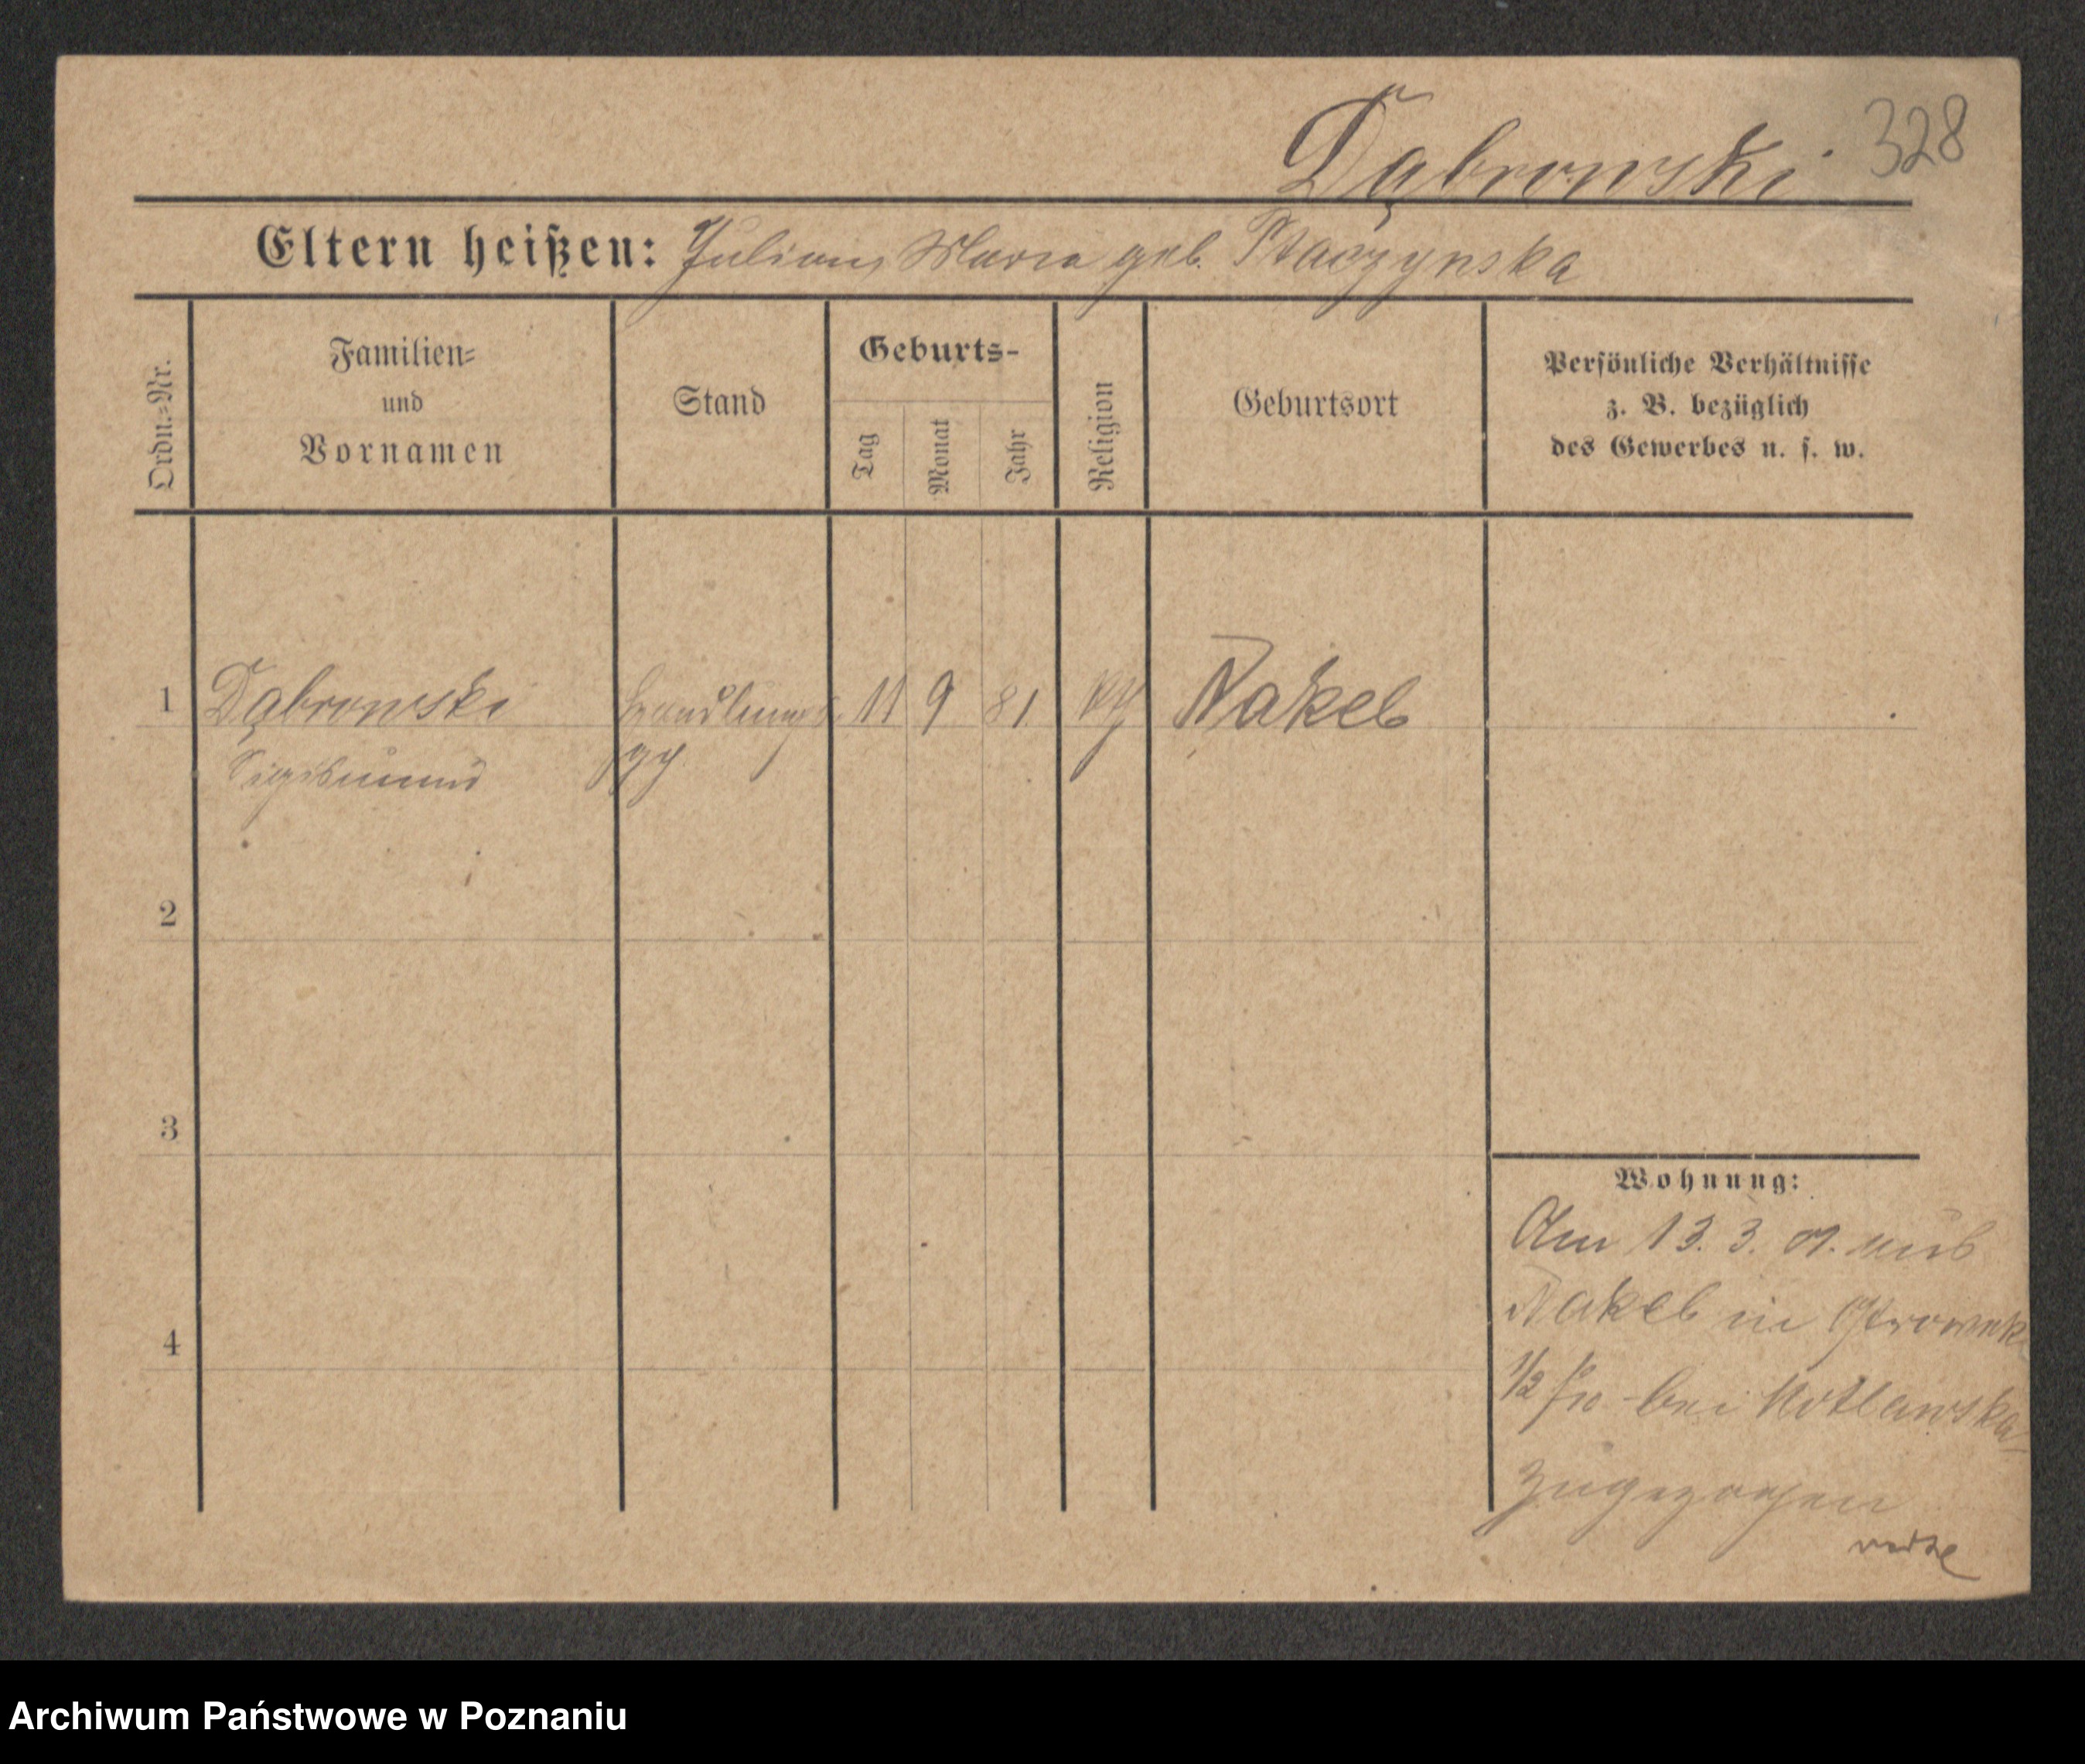 Dąbrowski 328
Eltern heißen: Julian, Maria geb. Ptaczynska
Ordn.=Nr.
Familien=
und
Vornamen
Stand
Geburts-
Tag
Monat
Jahr
Religion
Geburtsort
Persönliche Verhältnisse
z. B. bezüglich
des Gewerbes u. s. w.
1 Dąbrowski Handlungs 11 9 81 kth Nakel
Sigismund
2
3
4
Wohnung:
Am 13. 3. 01. aus
Nakel in
bei Kotlawska
zugezogen
Archiwum Państwowe w Poznaniu